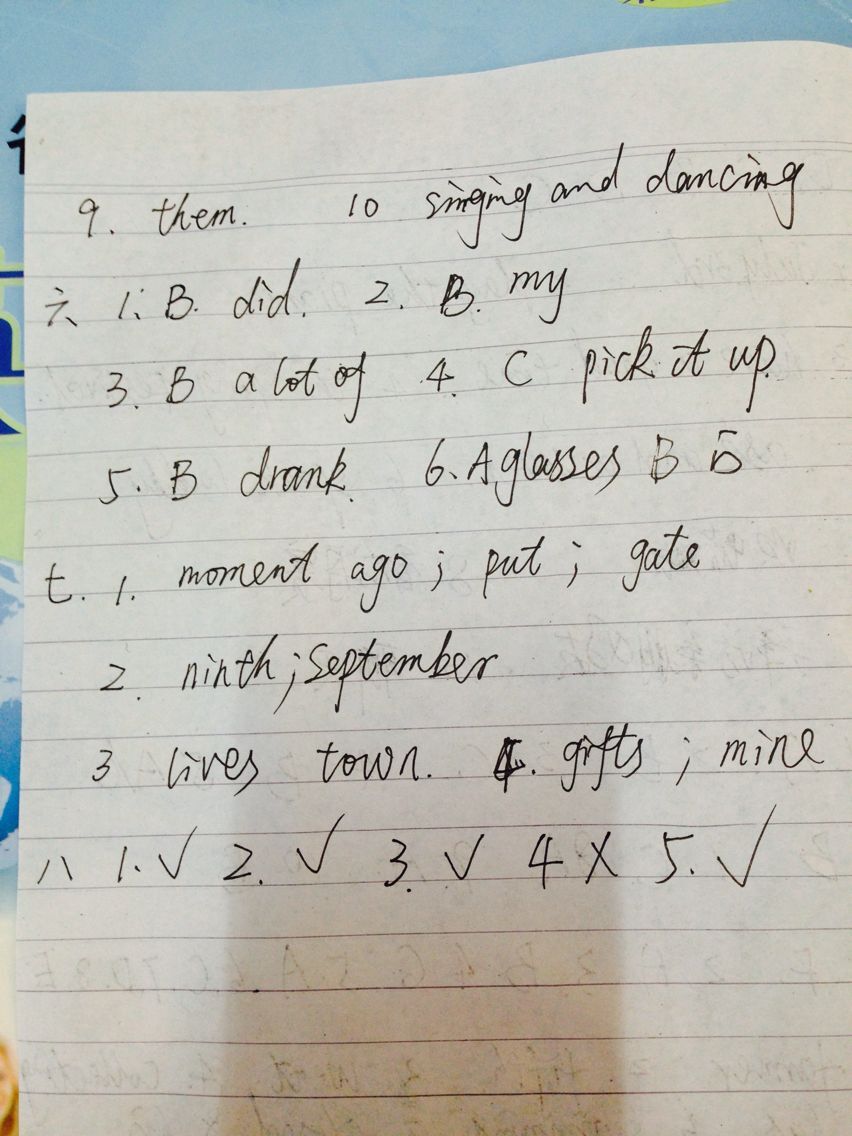 9. them. 10 singing and dancing
六、1. B. did. 2. B. my
3. B a lot of 4. C pick it up.
5. B drank. 6. A glasses B
七. 1. moment ago ; put ; gate
2. ninth ; September
3 lives town. 4. gifts ; mine
八 1. √ 2. √ 3. √ 4 X 5. √